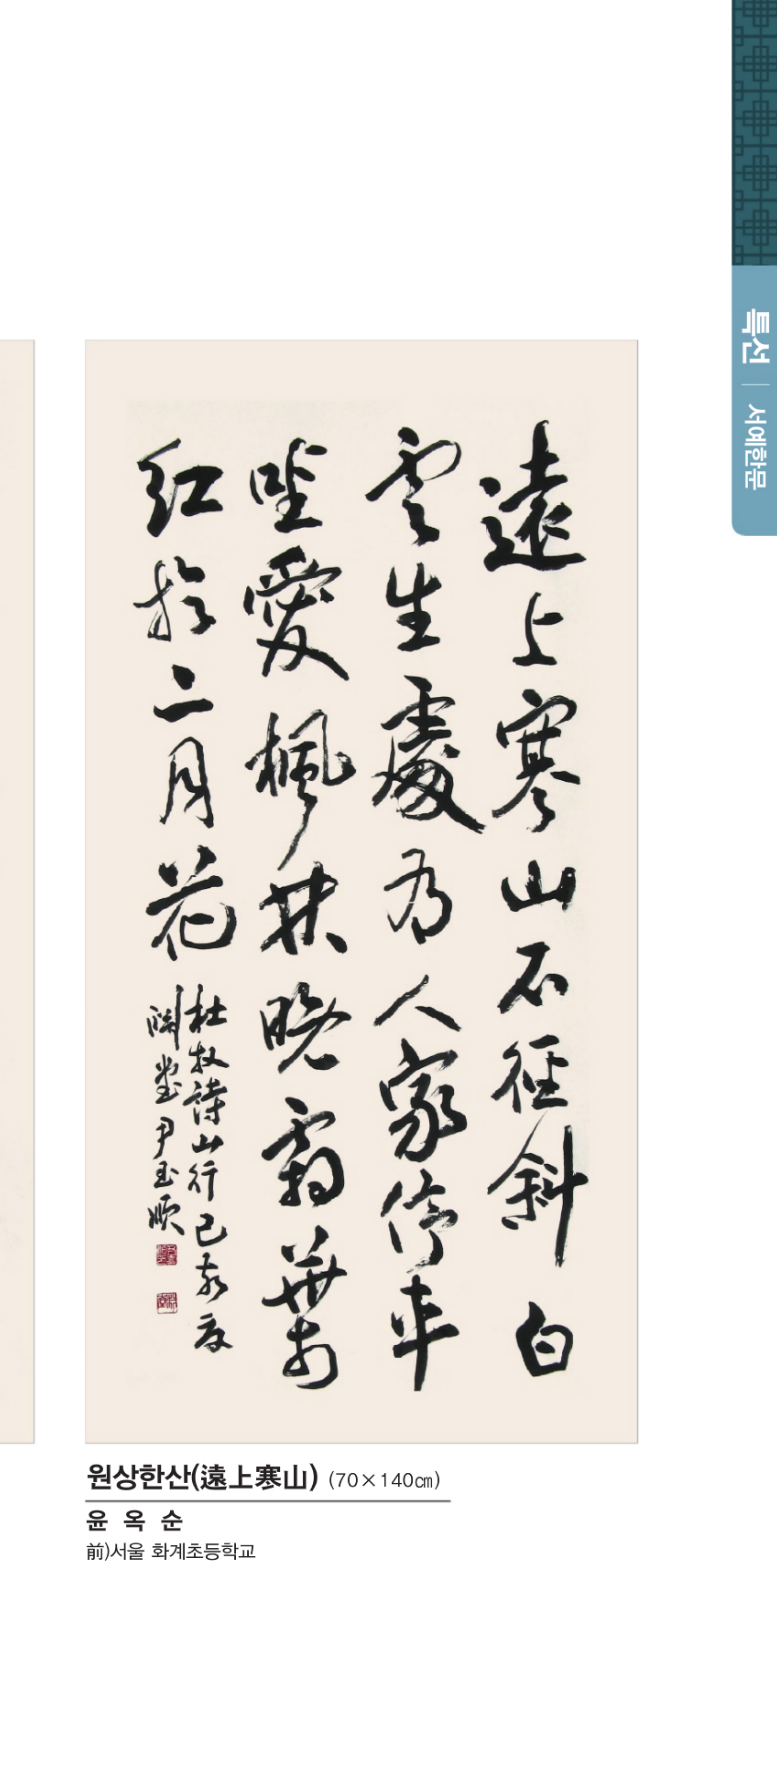 특선 | 서예한문
遠上寒山石徑斜白
雲生處爲人家停車
坐愛楓林晚霜葉
紅於二月花
杜牧詩山行己亥夏
堂尹玉順
원상한산(遠上寒山) (70×140㎝)
윤 옥 순
前)서울 화계초등학교